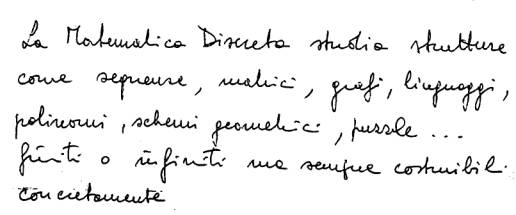 La Matematica Discreta studia strutture
come sequenze, matrici, grafi, linguaggi,
polinomi, schemi geometrici, puzzle ...
finiti o infiniti ma sempre costruibili
concretamente